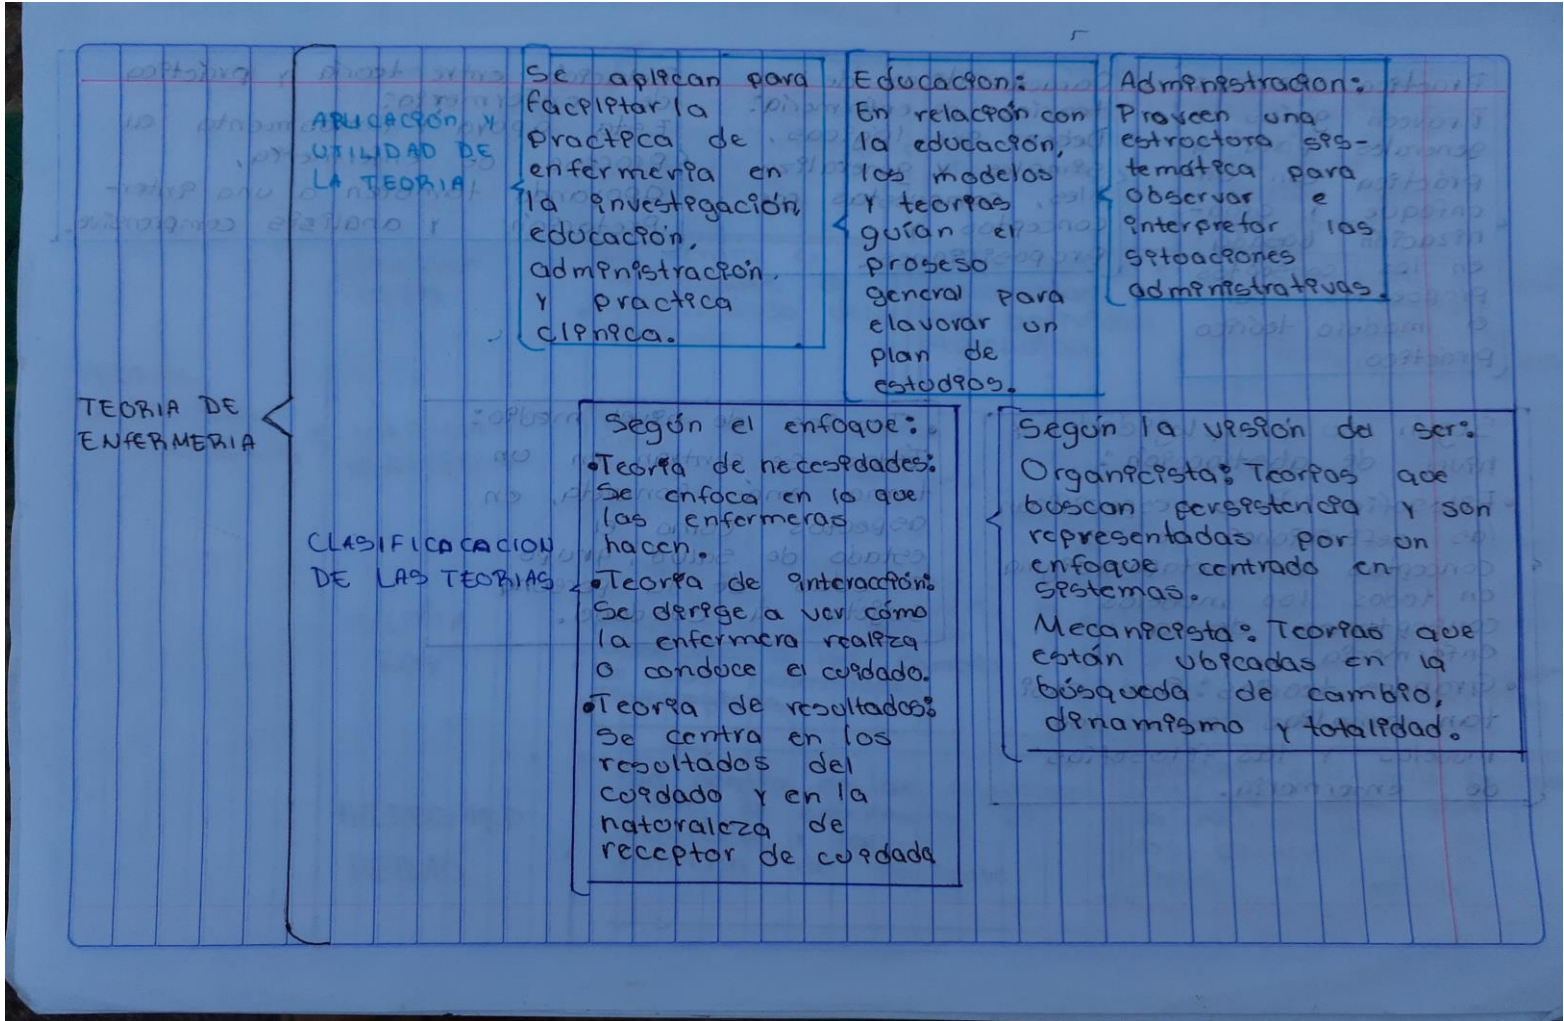 TEORIA DE
ENFERMERIA
APLICACIÓN Y
UTILIDAD DE
LA TEORIA
Se aplican para
facilitar la
practica de
enfermería en
la investigación,
educación,
administración.
Y practica
clinica.
Educacion:
En relación con
la educación,
los modelos
Y teorias
guían el
proseso
general para
elavorar un
plan de
estudios.
Administracion:
Proveen una
estructura sis-
temática para
observar e
interpretar las
situaciones
administrativas.
CLASIFICACACION
DE LAS TEORIAS
Según el enfoque:
•Teoría de necesidades:
Se enfoca en lo que
las enfermeras
hacen.
•Teoría de interacción:
Se dirige a ver cómo
la enfermera realiza
o conduce el cuidado.
•Teoría de resultados:
Se centra en los
resultados del
cuidado Y en la
naturaleza de
receptor de cuidado
Según la visión del ser:
Organicista: Teorias que
buscan persistencia Y son
representadas por un
enfoque centrado en
sistemas.
Mecanicista: Teorias que
están ubicadas en la
búsqueda de cambio,
dinamismo y totalidad.